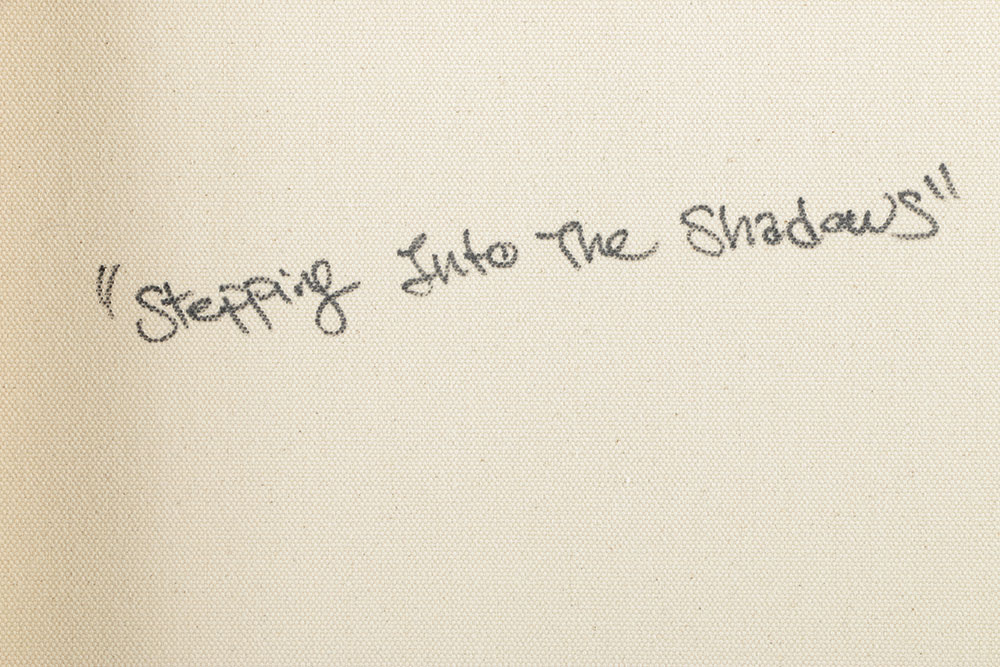 "Stepping Into The Shadows"